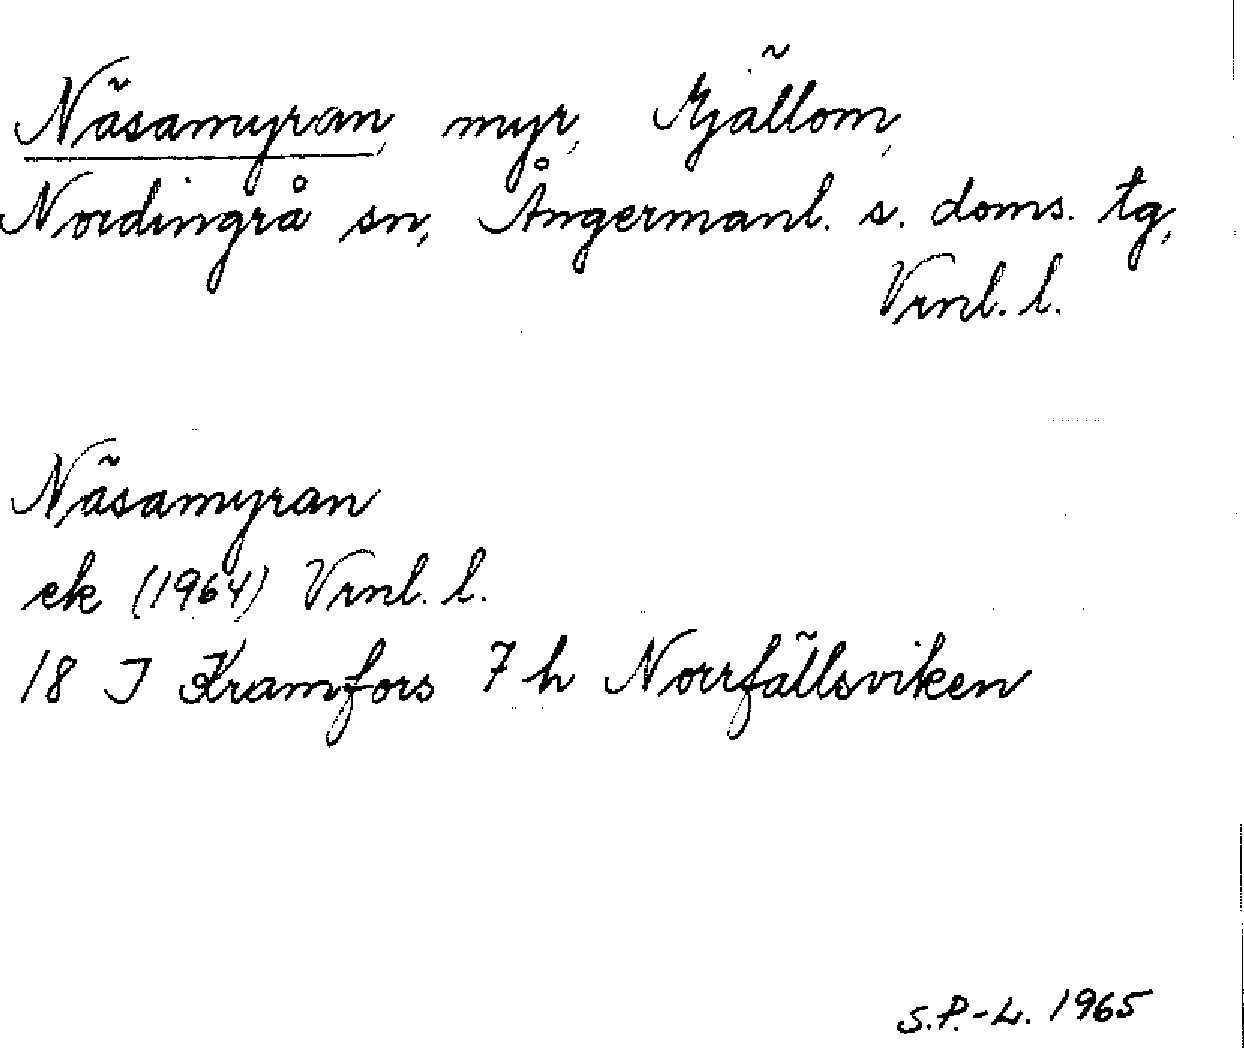 Näsamyran, myr, Mjällom,
Nordingrå sn, Ångermanl. s. doms. tg,
Vrnl. l.
Näsamyran
ek (1964) Vrnl. l.
18 J Kramfors 7 h Norrfällsviken
S.P.-L. 1965